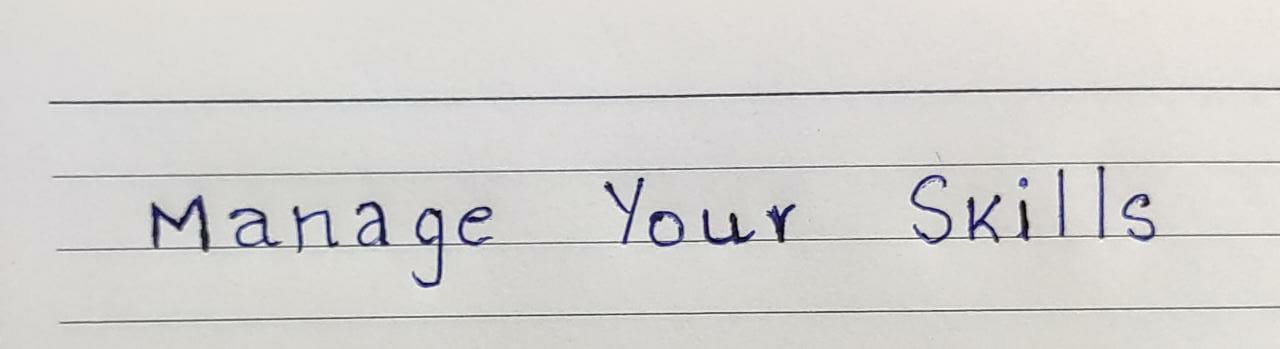 Manage Your Skills